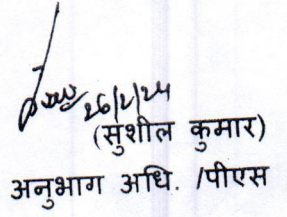 26/2/24
(सुशील कुमार)
अनुभाग अधि. /पीएस